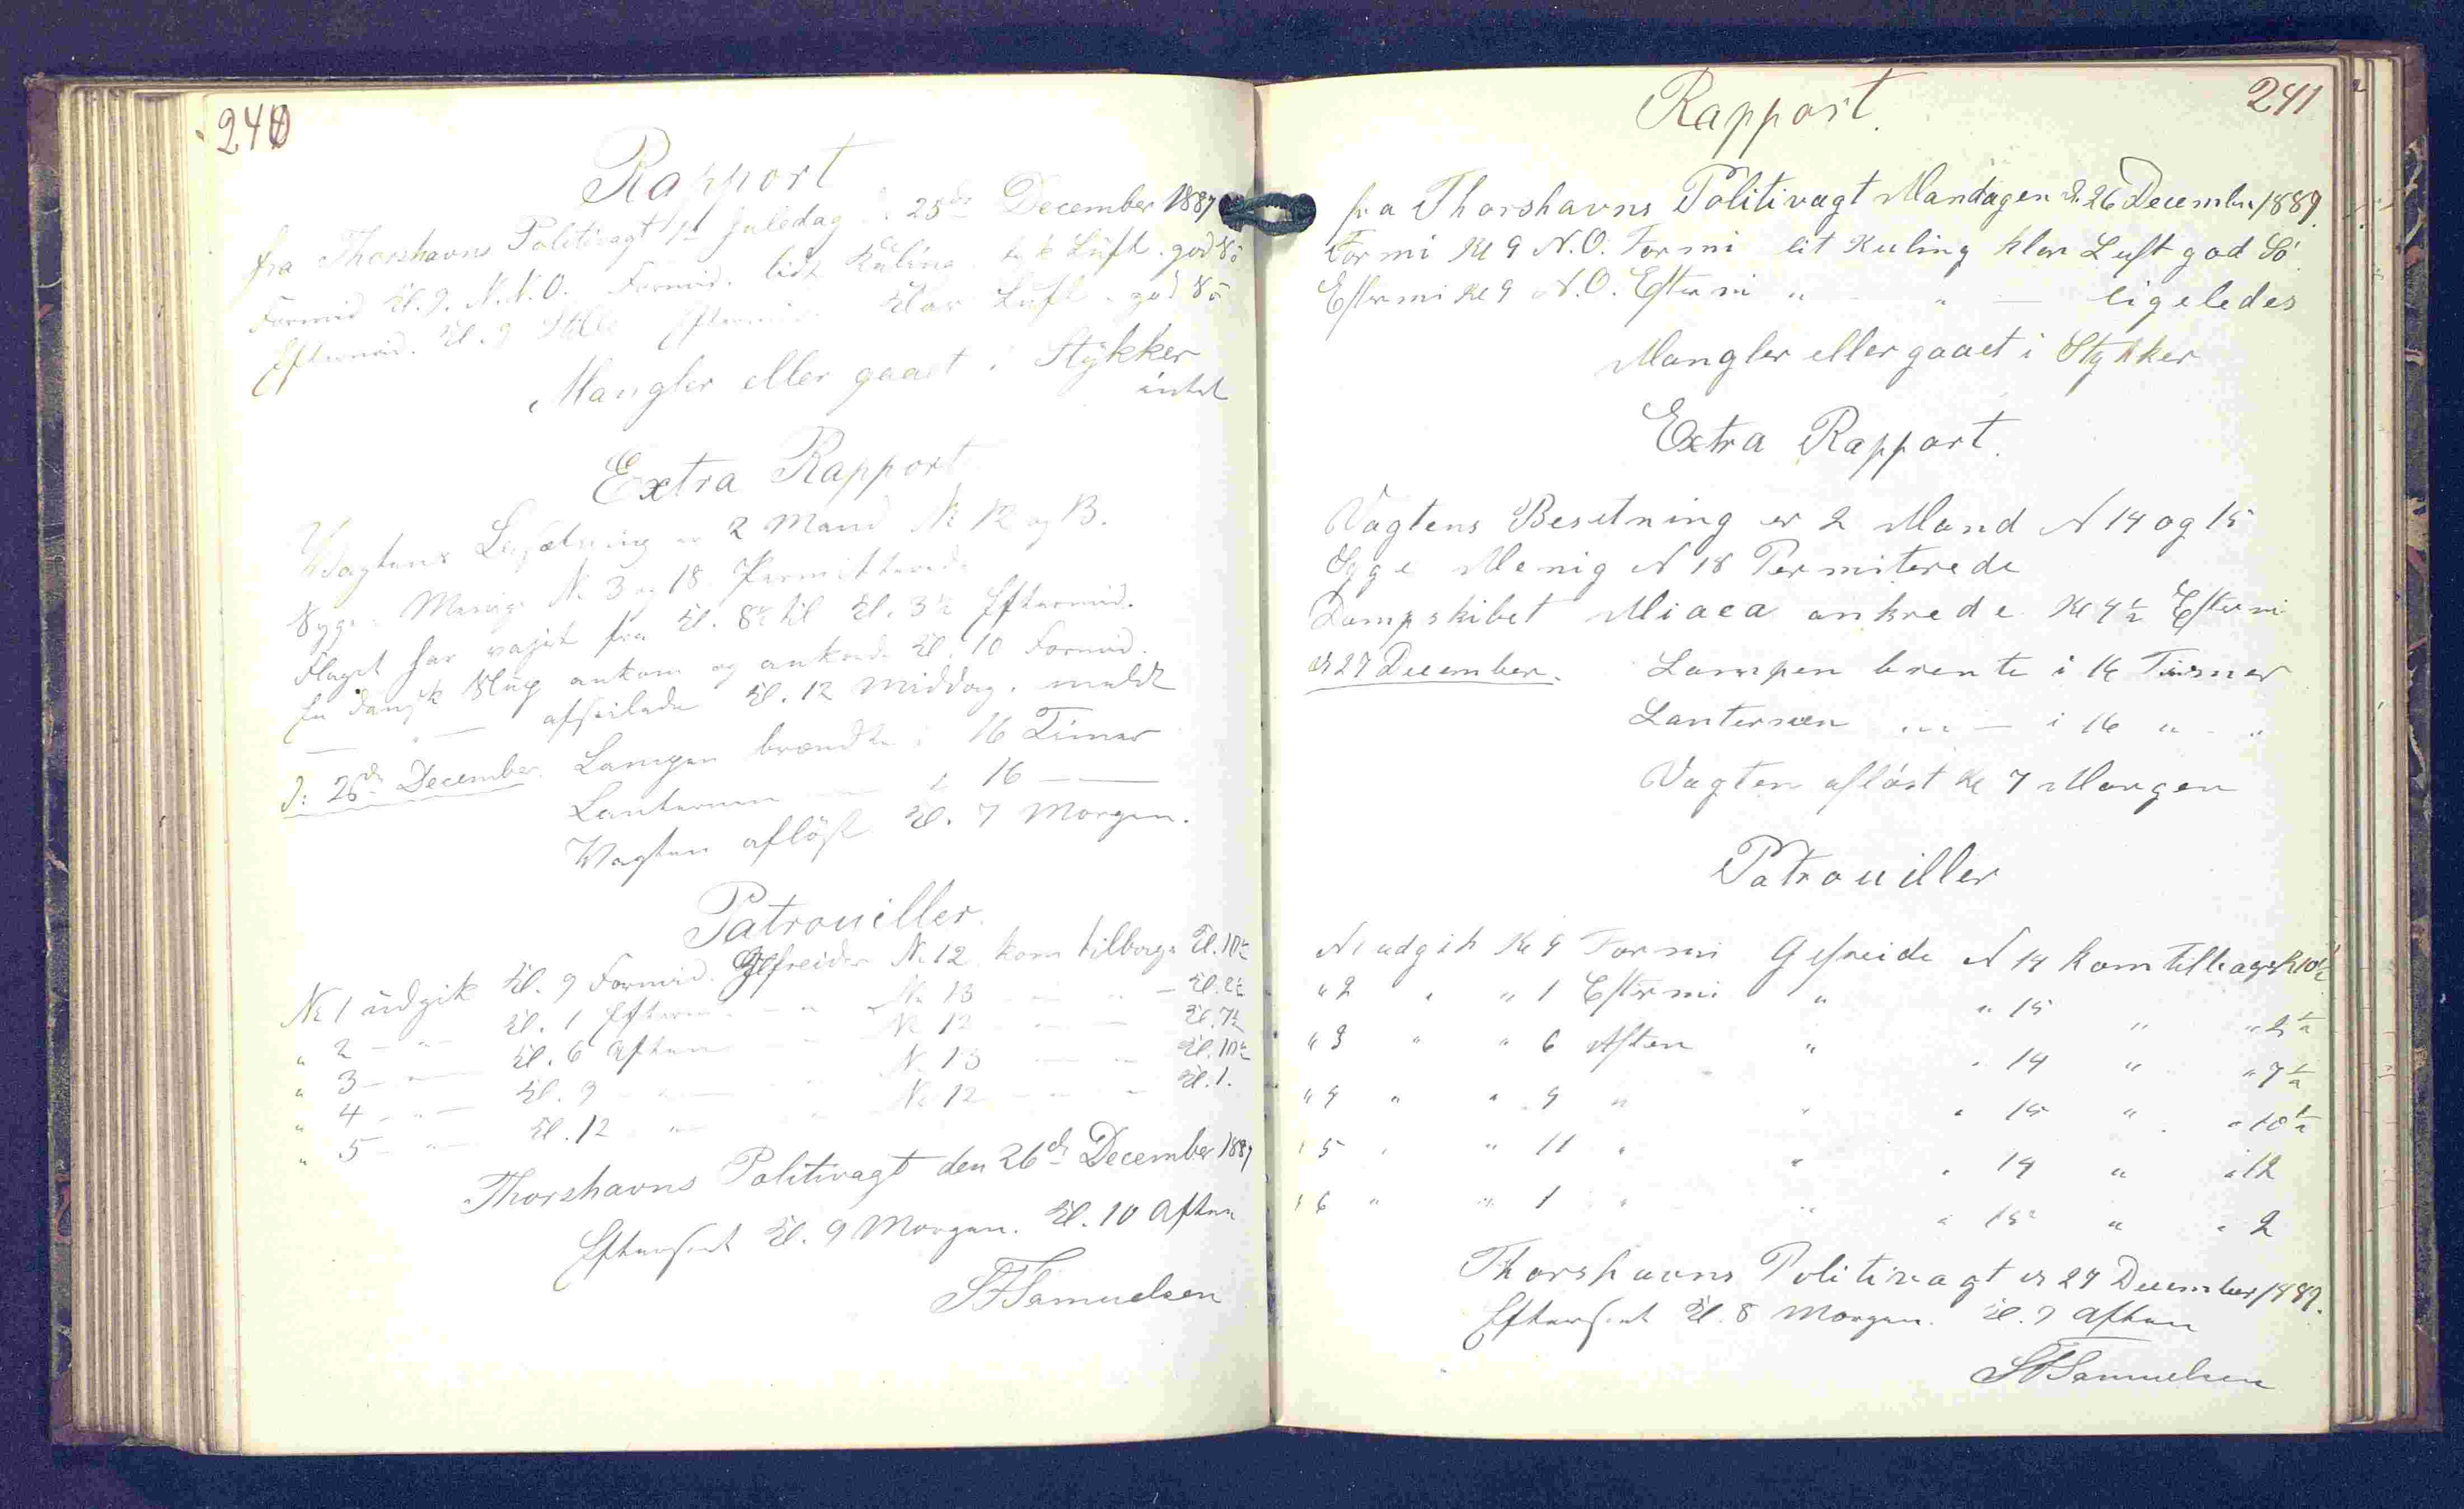 240
Rapport
fra Thorshavns Politivagt 1st Juledag d. 25de December 1887
Formid Kl. 9. N.N.O. Formid. lidt Kuling tyk Luft. god Sö
Eftermid. Kl. 9 Stille Eftermid. klar Luft. god Sö
Mangler eller gaaet i Stykker
intet
Extra Rapport
Vagtens Besætning er 2 Mand No 12 og 13.
Syge: Menige No 3 og 18 Permitterede
Flaget har vajet fra Kl. 8½ til Kl. 3½ Eftermid.
En dansk Slup ankom og ankrede Kl. 10 Formid.
— " — afseilede Kl. 12 Middag. meldt
d: 26de December. Lampen brændte i 16 Timer
Lanternen — " — i 16 — —
Vagten aflöst Kl. 7 Morgen.
Patrouiller.
No 1 udgik Kl. 9 Formid. Gefreider No 12 kom tilbage Kl. 10½
" 2 — " — Kl. 1 Efterm. — " — No 13 — " — Kl. 2½
" 3 — " — Kl. 6 Aften — " — No 12 — " — Kl. 7½
" 4 — " — Kl. 9 — " — No 13 — " — Kl. 10½
" 5 — " — Kl. 12 — " — No 12 — " — Kl. 1.
Thorshavns Politivagt den 26de December 1887
Efterseet Kl. 9 Morgen. Kl. 10 Aften
Samuelsen
241
Rapport.
fra Thorshavns Politivagt Mandagen d. 26 December 1887.
For mi Kl 9 N.O. For mi lit Kuling klar Luft god Sö
Efter mi Kl 9 N.O. Efter mi " — " — ligeledes
Mangler eller gaaet i Stykker
Extra Rapport.
Vagtens Besetning er 2 Mand N 14 og 15
Syge Menig N 18 Permiterede
Dampskibet ankrede Kl 4½ Efter mi
d 27 December. Lampen brente i 16 Timer
Lanternen " " — i 16 " - "
Vagten aflöst Kl 7 Morgen
Patrouiller
N 1 udgik Kl 9 For mi Gefreide N 14 kom tilbage Kl 10½
" 2 " " 1 Efter mi " " 15 " " 2½
" 3 " " 6 Aften " " 14 " " 7½
" 4 " " 9 " " " 15 " " 10½
" 5 " " 11 " " " 14 " " 12
" 6 " " 1 " " " 15 " " 2
Thorshavns Politivagt d 27 December 1887.
Efterseet Kl. 8 Morgen. Kl. 9 Aften
Samuelsen